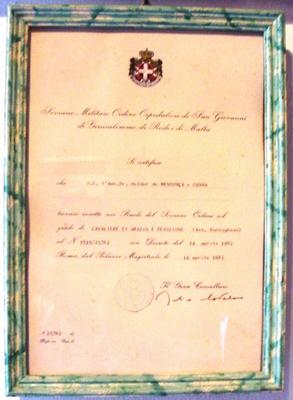 Sovrano Militare Ordine Ospedaliero di San Giovanni
di Gerusalemme, di Rodi e di Malta
Si certifica
che S.E. l'Amb.Dr. Helder de MENDONÇA e CUNHA
trovasi iscritto nei Ruoli del Sovrano Ordine nel
grado di CAVALIERE DI GRAZIA E DEVOZIONE (Ass. Portoghese)
al N° con Decreto del 14 aprile
Roma, dal Palazzo Magistrale, li 14 aprile
Il Gran Cancelliere